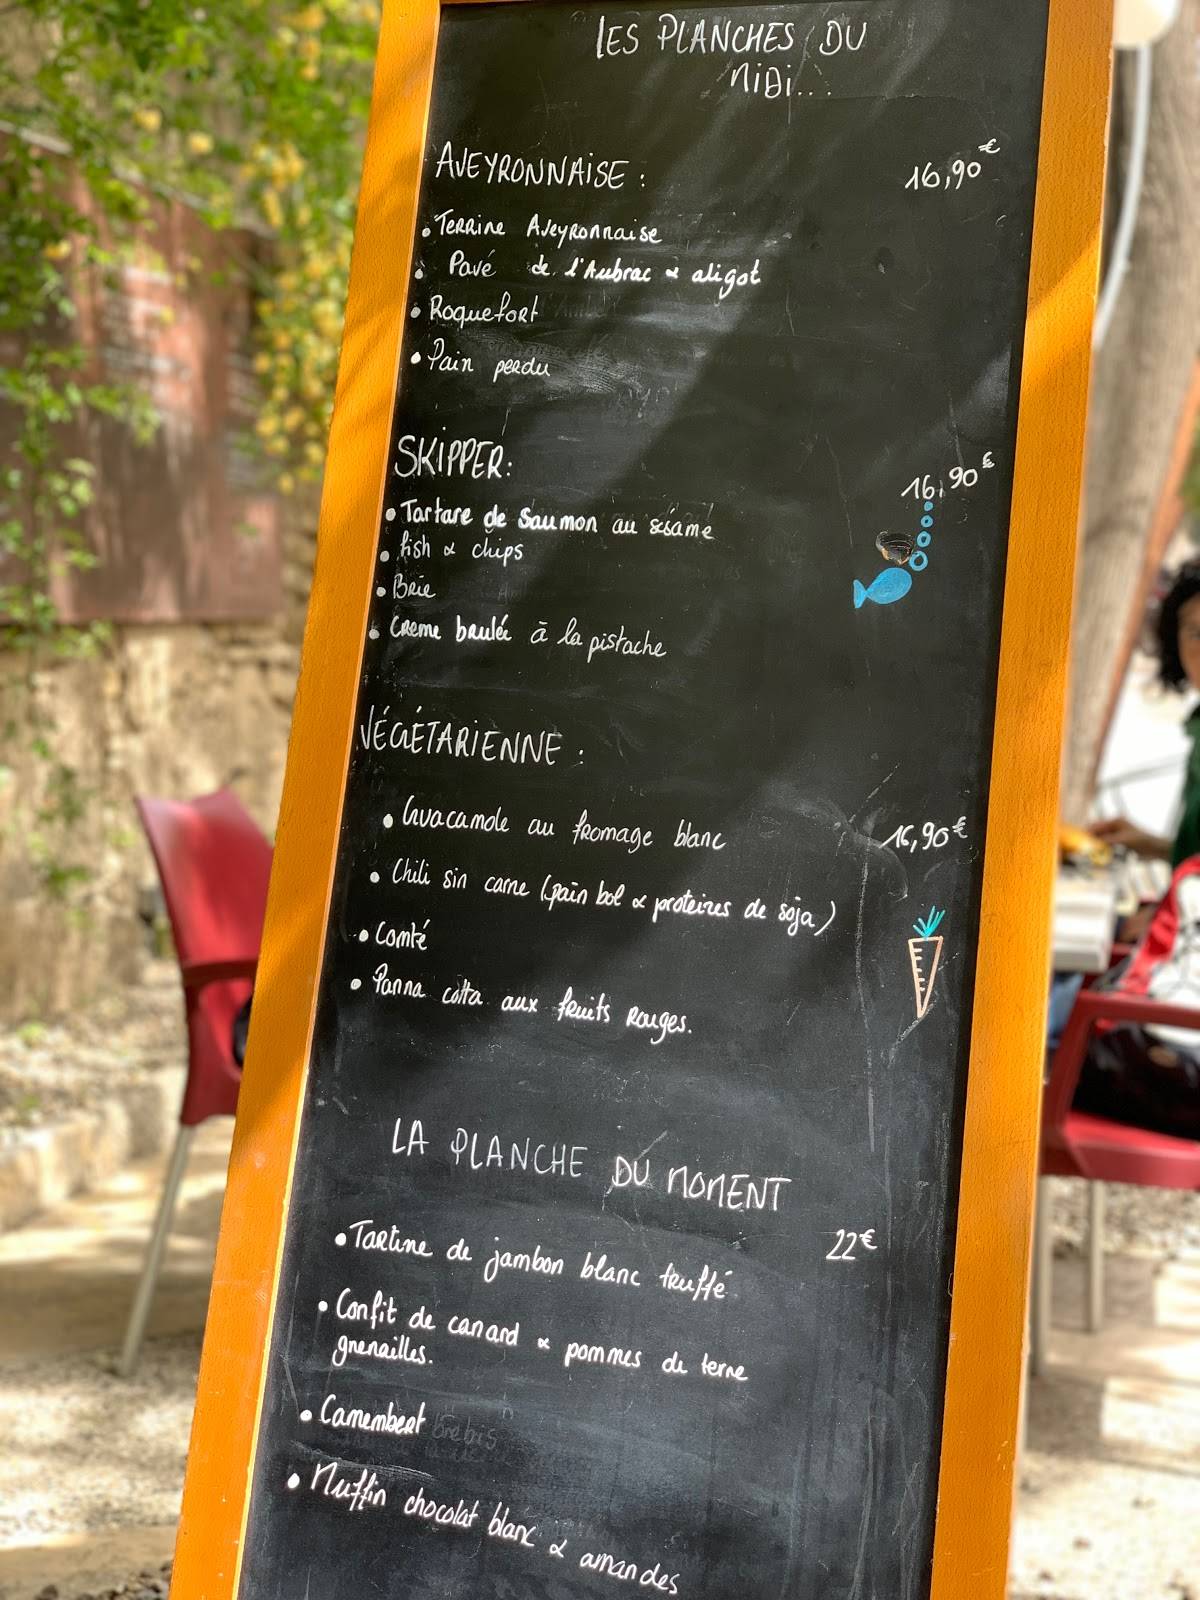 LES PLANCHES DU
MiDi...
AVEYRONNAiSE : 16,90€
• Terrine Aveyronnaise
• Pavé de l'Aubrac & aligot
• Roquefort
• Pain perdu
SKiPPER: 16,90€
• Tartare de saumon au sésame
• fish & chips
• Brie
• Creme brulée à la pistache
VÉGÉTARiENNE :
• Guacamole au fromage blanc 16,90€
• Chili sin carne (pain bol & proteines de soja)
• Comté
• Panna cotta aux fruits rouges.
LA PLANCHE DU MOMENT
22€
• Tartine de jambon blanc truffé
• Confit de canard & pommes de terre
grenailles.
• Camembert brebis
• Muffin chocolat blanc & amandes